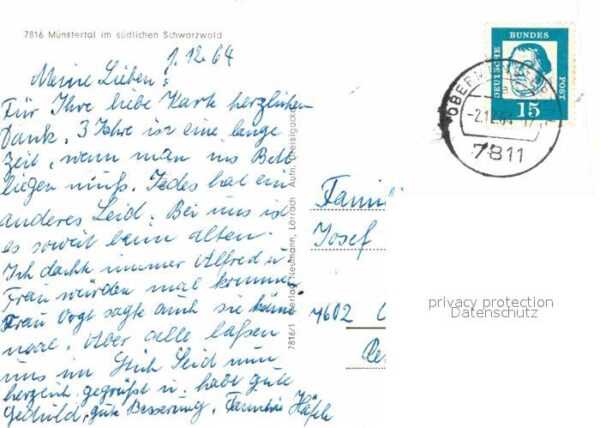 7816 Münstertal im südlichen Schwarzwald
1.12.64
Meine Lieben!
Für Ihre liebe Karte herzlichen
Dank, 3 Jahre ist eine lange
Zeit, wenn man ins Bett
liegen muß. Jedes hat ein
anderes Leid. Bei uns ist
es soweit beim alten.
Ich dachte immer Alfred u.
Frau würden mal kommen
Frau Vogt sagte auch sie käme
mal. Aber alle laßen
uns im Stich. Seid nun
herzlich gegrüßt u. habt gute
Geduld, gute Besserung, Familie Häfele
7816/1 Neumann, Lörrach Aufn. Dreissigacker
DEUTSCHE
BUNDES
POST
15
-2.12.64
7811
Famili
Josef
7602
privacy protection
Datenschutz